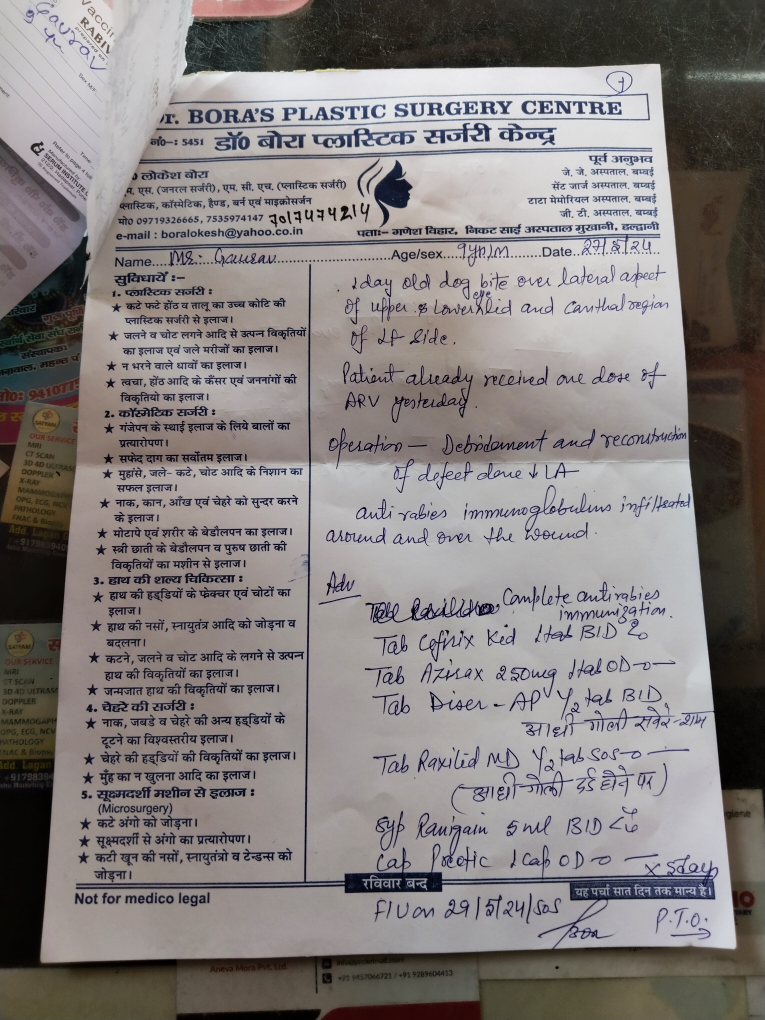 Dr. BORA'S PLASTIC SURGERY CENTRE
5451 डॉ0 बोरा प्लास्टिक सर्जरी केन्द्र
लोकेश बोरा
एम. एस. (जनरल सर्जरी), एम. सी. एच. (प्लास्टिक सर्जरी)
प्लास्टिक, कॉस्मेटिक, हैण्ड, बर्न एवं माइक्रोसर्जन
मो0 09719326665, 7535974147 7017474214
e-mail : boralokesh@yahoo.co.in
पूर्व अनुभव
जे. जे. अस्पताल, बम्बई
सेंट जार्ज अस्पताल, बम्बई
टाटा मेमोरियल अस्पताल, बम्बई
जी. टी. अस्पताल, बम्बई
पताः- गणेश विहार, निकट साई अस्पताल मुखानी, हल्द्वानी
Name Mr. Gaurav Age/sex 9yr/m Date. 27/5/24
सुविधायें :-
1. प्लास्टिक सर्जरी :
★ कटे फटे होंठ व तालू का उच्च कोटि की
प्लास्टिक सर्जरी से इलाज।
★ जलने व चोट लगने आदि से उत्पन्न विकृतियों
का इलाज एवं जले मरीजों का इलाज।
★ न भरने वाले घावों का इलाज।
★ त्वचा, होंठ आदि के कैंसर एवं जननांगों की
विकृतियो का इलाज।
2. कॉस्मेटिक सर्जरी :
★ गंजेपन के स्थाई इलाज के लिये बालों का
प्रत्यारोपण।
★ सफेद दाग का सर्वोतम इलाज।
★ मुहांसे, जले- कटे, चोट आदि के निशान का
सफल इलाज।
★ नाक, कान, आँख एवं चेहरे को सुन्दर करने
के इलाज।
★ मोटापे एवं शरीर के बेडौलपन का इलाज।
★ स्त्री छाती के बेडौलपन व पुरुष छाती की
विकृतियों का मशीन से इलाज।
3. हाथ की शल्य चिकित्सा :
★ हाथ की हड्डियों के फ्रेक्चर एवं चोटों का
इलाज।
★ हाथ की नसों, स्नायुतंत्र आदि को जोड़ना व
बदलना।
★ कटने, जलने व चोट आदि के लगने से उत्पन्न
हाथ की विकृतियों का इलाज।
★ जन्मजात हाथ की विकृतियों का इलाज।
4. चेहरे की सर्जरी :
★ नाक, जबडे व चेहरे की अन्य हड्डियों के
टूटने का विश्वस्तरीय इलाज।
★ चेहरे की हड्डियों की विकृतियों का इलाज।
★ मुँह का न खुलना आदि का इलाज।
5. सूक्ष्मदर्शी मशीन से इलाज :
(Microsurgery)
★ कटे अंगो को जोड़ना।
★ सूक्ष्मदर्शी से अंगो का प्रत्यारोपण।
★ कटी खून की नसों, स्नायुतंत्रो व टेन्डन्स को
जोड़ना।
1 day old dog bite over lateral aspect
of upper & Lower eyelid and canthal region
of Lt side.
Patient already received one dose of
ARV yesterday.
operation — Debridement and reconstruction
of defect done ↓ LA
anti rabies immunoglobulins infiltrated
around and over the wound.
Adv
Complete antirabies
immunization.
Tab Cefixix Kid 1tab BID
Tab Azisax 250mg 1tab OD
Tab Diser-AP 1/2 tab BID
आधी गोली सवेरे-शाम
Tab Raxilid MD 1/2 tab SOS
(आधी गोली दर्द होने पर)
Syp Ranigain 5ml BID
Cap 1 cap OD
x 5days
रविवार बन्द
Not for medico legal
यह पर्चा सात दिन तक मान्य है।
F/U on 29/5/24/SOS
P.T.O.
Gaurav
OUR SERVICE
MRI
CT SCAN
3D 4D ULTRASO
DOPPLER
X-RAY
MAMMOGRAPH
OPG, ECG, NCV
PATHOLOGY
Add. Lagan
Aneva Mora Pvt. Ltd.
+91 9457066721 / +91 9289604413